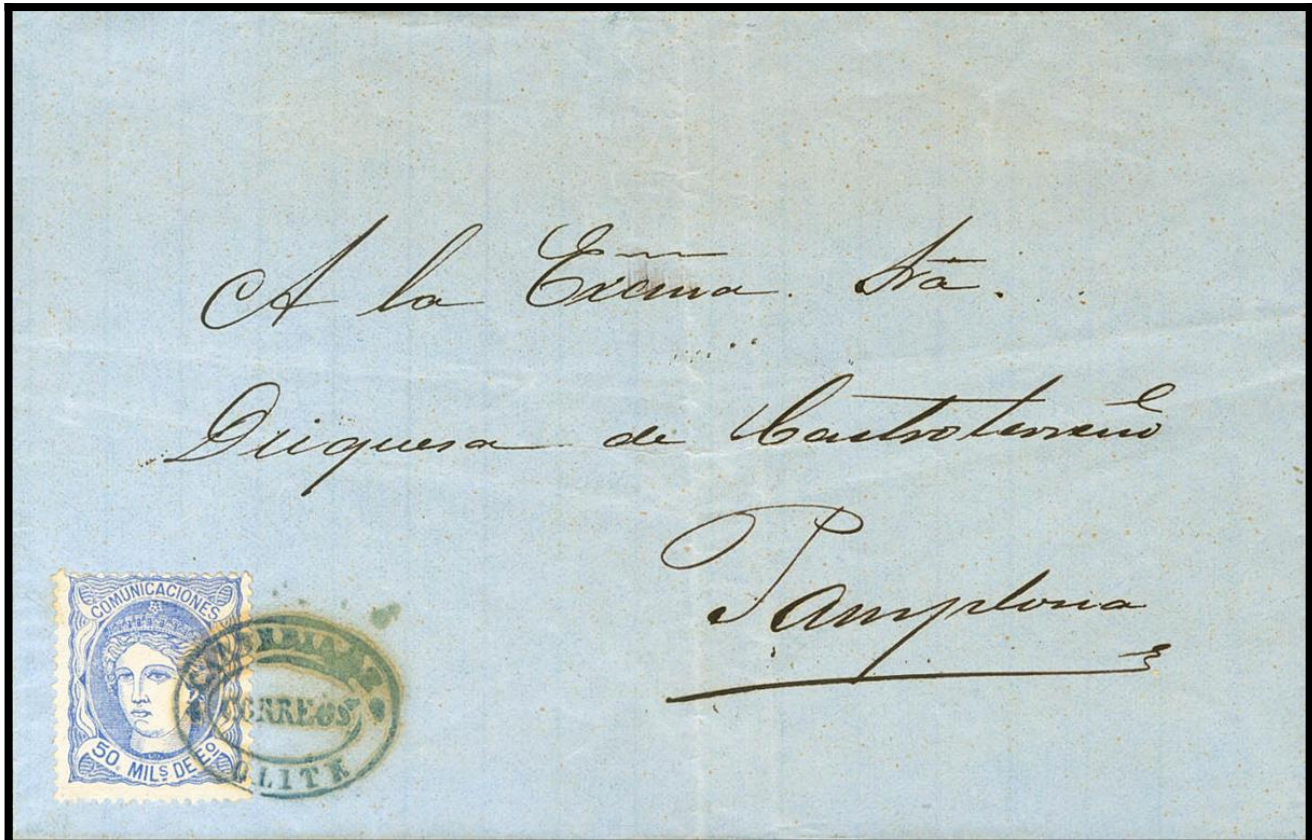 A la Exc̃ma. Srã.
Duquesa de Castroterreño
Pamplona
COMUNICACIONES
50. MILS DE Eº
CORREOS
OLITE